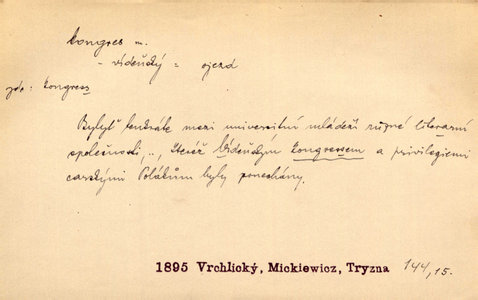 kongres m.
- vídeňský = sjezd
zde: kongress
Bylyť tenkráte mezi universitní mládeží různé literarní
společnosti, .., kteréž Vídeňským kongressem a privilegiemi
carskými Polákům byly ponechány.
1895 Vrchlický, Mickiewicz, Tryzna 144,15.